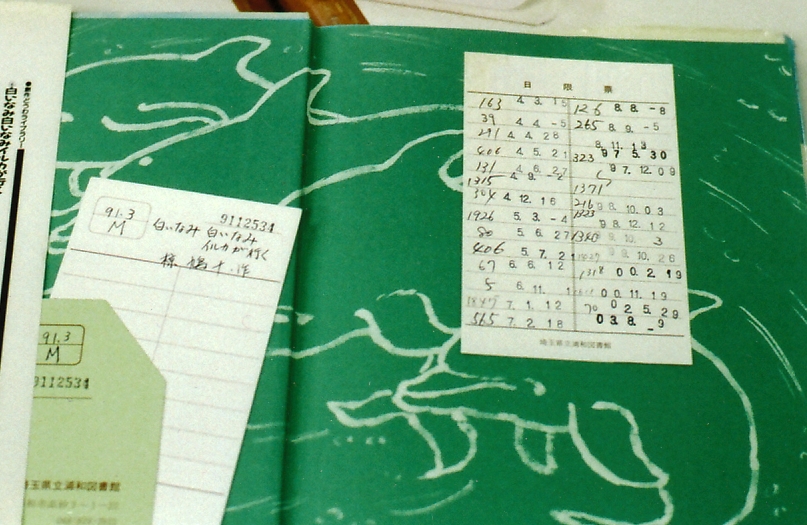 ●創作こどもライブラリー
白いなみ白いなみイルカが行く
91.3
M
9112534
白いなみ 白いなみ
イルカが行く
91.3
M
9112534
埼玉県立浦和図書館
日 限 票
163 4. 3. 15
39 4. 4. -5
291 4. 4. 28
406 4. 5. 21
131 4. 6. 27
1315 4. 9. -2
304 4. 12. 16
1926 5. 3. -4
80 5. 6. 27
406 5. 7. 2
67 6. 6. 12
5 6. 11. 1
1847 7. 1. 12
565 7. 2. 18
126 8. 8. -8
265 8. 9. -5
8. 11. 13
323 9 7. 5. 30
9 7. 12. 09
1371
216 9 8. 10. 03
1323 9 8. 12. 12
9 9. 10. 3
9 9. 10. 26
1318 0 0. 2. 19
0 0. 11. 19
70 0 2. 5. 29
0 3. 8. -9
埼玉県立浦和図書館